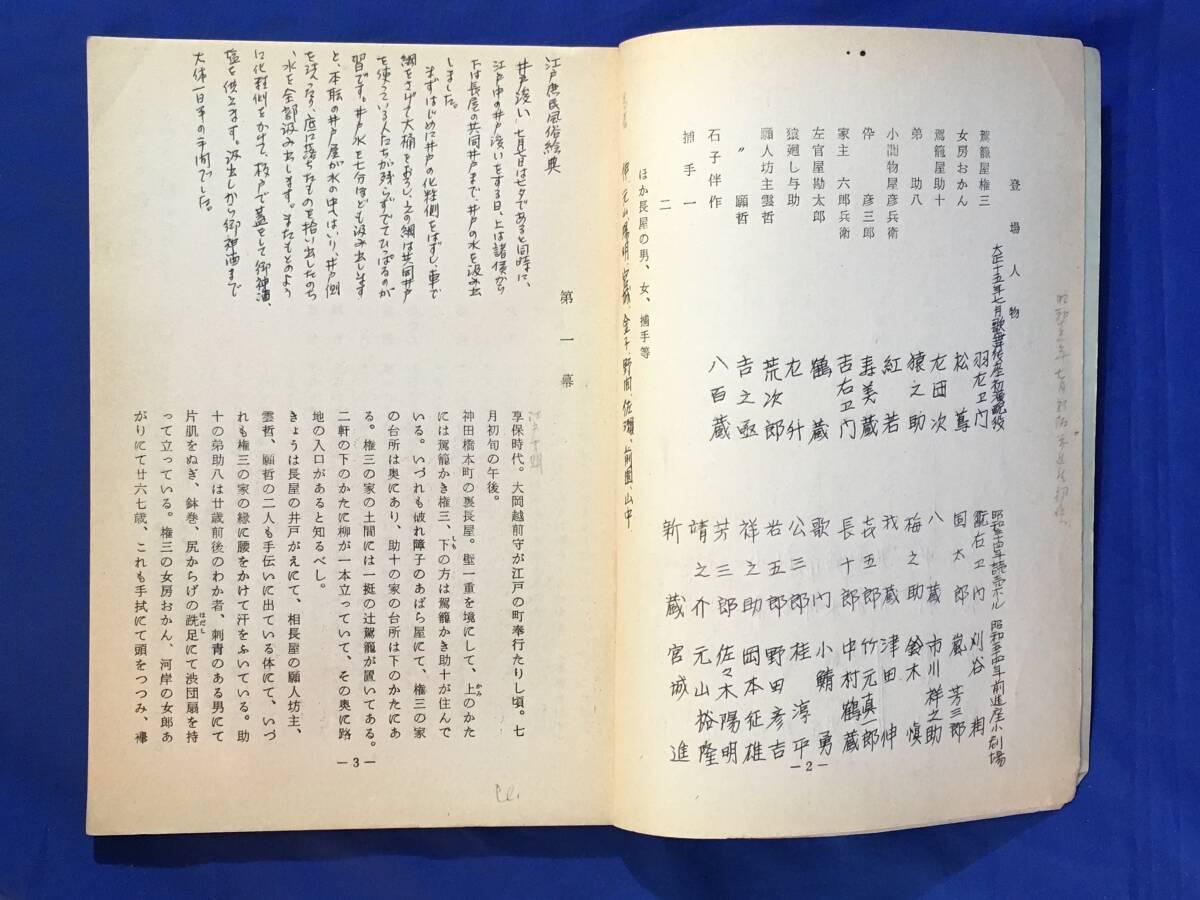 登場人物
大正十五年七月歌舞伎座初演配役
昭和三十四年読売ホール
昭和五十四年前進座小劇場
駕籠屋権三 羽左卫门 刈谷 潤
女房おかん 松蔦 国太郎 嵐 芳三郎
駕籠屋助十 左団次 八蔵 市川祥之助
弟 助八 猿之助 梅之助 鈴木 慎
小間物屋彦兵衛 紅若 我蔵 津田 伸
伜 彦三郎 寿美蔵 㐂五郎 竹元真一郎
家主 六郎兵衛 吉右卫门 長十郎 中村鶴蔵
左官屋勘太郎 鶴蔵 歌门 小鯖 勇
猿廻し与助 左升 公三郎 桂 淳平
願人坊主雲哲 荒次郎 岩五郎 野田彦吉
〃 願哲 吉之亟 祥之助 岡本征雄
石子伴作 八百蔵 芳三郎 佐々木陽明
捕手一 靖之介 元山裕隆
二 新蔵 宮城 進
ほか長屋の男、女、捕手等
金子、野間、佐環、前園、山中
― 2 ―
江戸庶民風俗絵典
井戸浚い 七月七日は七夕であると同時に、
江戸中の井戸浚いをする日、上は諸侯から
下は長屋の共同井戸まで、井戸の水を汲み出
しました。
まずはじめに井戸の化粧側をはずし、車で
綱をさげて大桶をおろし、この綱は共同井戸
を使っている人たちが残らずでてひっぱるのが
習です。井戸水を七分ほども汲み出します
と、本職の井戸屋が水の中へはいり、井戸側
を洗ったり、底に落ちたものを拾い出したのち
、水を全部汲み出します。またもとのよう
に化粧側をかけて、板戸で蓋をして御神酒、
塩を供えます。汲出しから御神酒まで
大体一日半の手間でした。
第一幕
享保時代。大岡越前守が江戸の町奉行たりし頃。七
月初旬の午後。
神田橋本町の裏長屋。壁一重を境にして、上のかた
には駕籠かき権三、下の方は駕籠かき助十が住んで
いる。いづれも破れ障子のあばら屋にて、権三の家
の台所は奥にあり、助十の家の台所は下のかたにあ
る。権三の家の土間には一挺の辻駕籠が置いてある。
二軒の下のかたに柳が一本立っていて、その奥に路
地の入口があると知るべし。
きょうは長屋の井戸がえにて、相長屋の願人坊主、
雲哲、願哲の二人も手伝いに出ている体にて、いづ
れも権三の家の縁に腰をかけて汗をふいている。助
十の弟助八は廿歳前後のわか者、刺青のある男にて
片肌をぬぎ、鉢巻、尻からげの跣足にて渋団扇を持
って立っている。権三の女房おかん、河岸の女郎あ
がりにて廿六七歳、これも手拭にて頭をつつみ、襷
― 3 ―